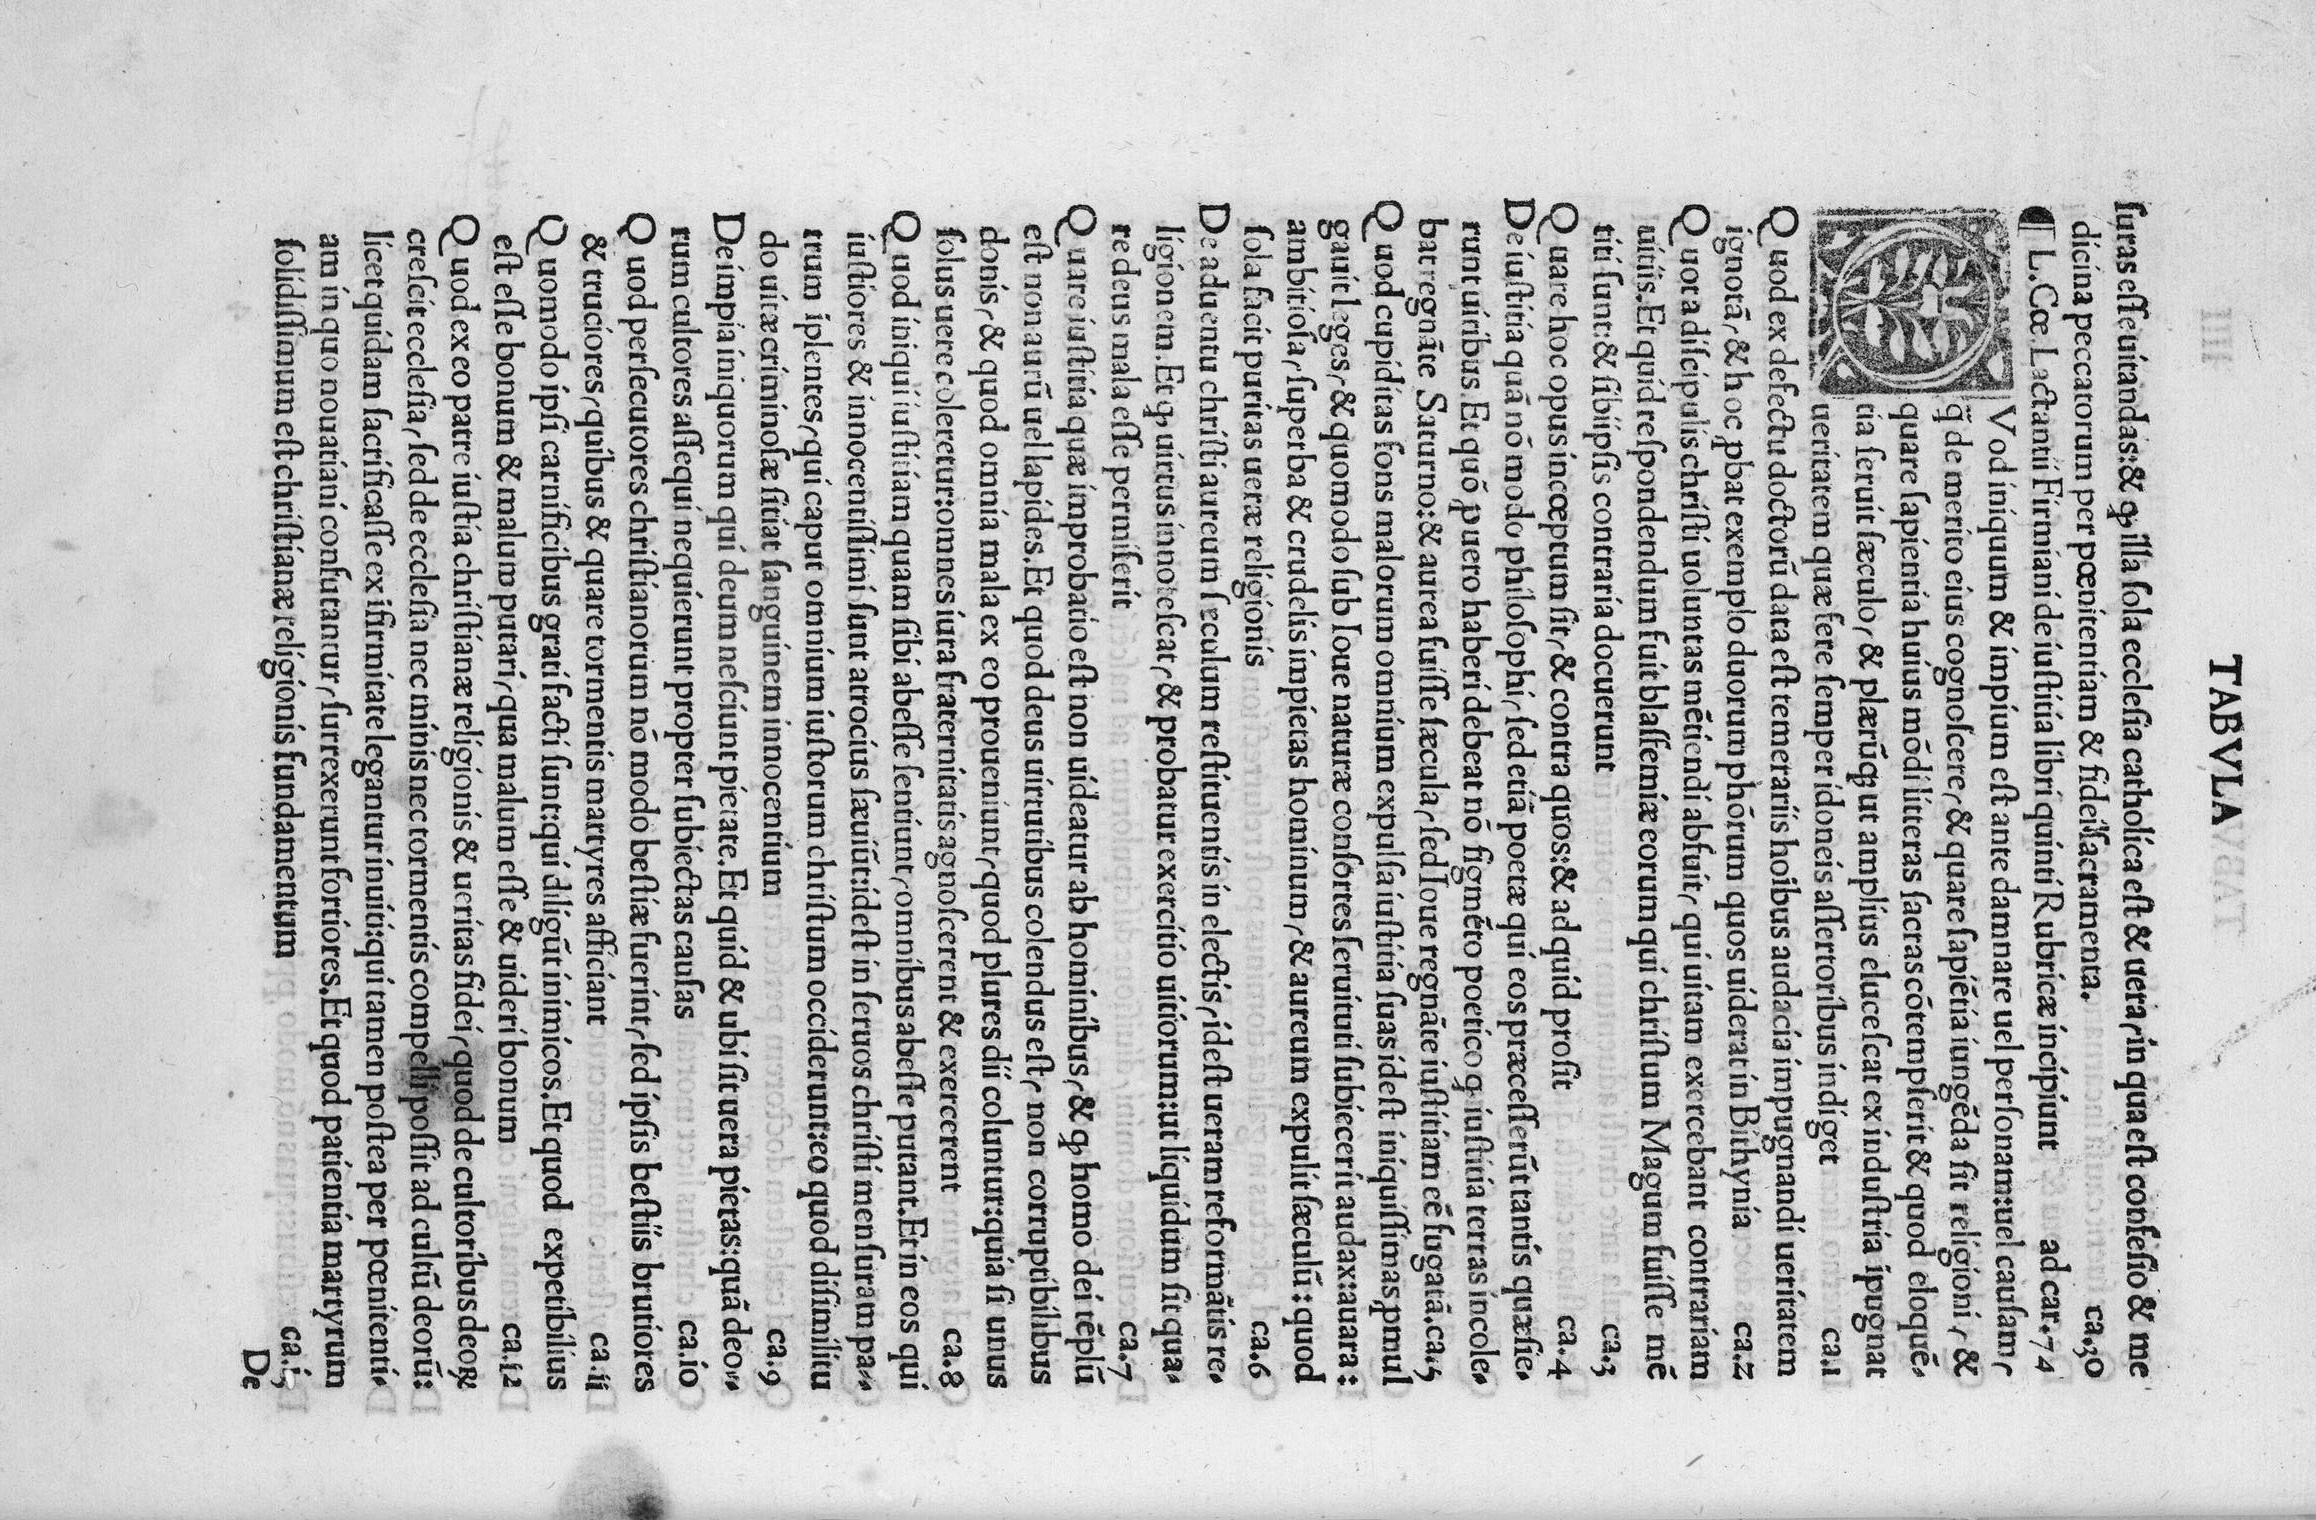 TABVLA
ſuras eſſe uitandas:& ꝙ illa ſola eccleſia catholica eſt & uera, in qua eſt confeſſio & me
dicina peccatorum per pœnitentiam & fidei ſacramenta. ca.30
¶ L.Cœ.Lactantii Firmiani de iuſtitia libri quinti Rubricæ incipiunt ad car.74
QVod iniquum & impium eſt ante damnare uel perſonam:uel cauſam,
q̃ de merito eius cognoſcere, & quare ſapiẽtia iungẽda ſit religioni, &
quare ſapientia huius mõdi litteras ſacras cõtempſerit & quod eloquẽ-
tia ſeruit ſæculo, & plærũqꝫ ut amplius eluceſcat ex induſtria ipugnat
ueritatem quæ fere ſemper idoneis aſſertoribus indiget ca.1
Quod ex defectu doctorũ data eſt temerariis hoibus audacia impugnandi ueritatem
ignotã, & hoc ꝓbat exemplo duorum phõrum quos uiderat in Bithynia ca.2
Quota diſcipulis chriſti uoluntas mẽtiendi abfuit, qui uitam exercebant contrariam
uitiis.Et quid reſpondendum fuit blaſſemiæ eorum qui chriſtum Magum fuiſſe mẽ
titi ſunt:& ſibiipſis contraria docuerunt ca.3
Quare hoc opus incœptum ſit, & contra quos:& ad quid proſit ca.4
De iuſtitia quã nõ modo philoſophi, ſed etiã poetæ qui eos præceſſerũt tantis quæſie-
runt uiribus.Et quõ ꝓ puero haberi debeat nõ figmẽto poetico ꝙ iuſtitia terras incole-
bat regnãte Saturno:& aurea fuiſſe ſæcula, ſed Ioue regnãte iuſtitiam eẽ fugatã.ca.5
Quod cupiditas fons malorum omnium expulſa iuſtitia ſuas ideſt iniquiſſimas ꝓmul
gauit leges, & quomodo ſub Ioue naturæ conſortes ſeruituti ſubiecerit audax:auara:
ambitioſa, ſuperba & crudelis impietas hominum, & aureum expulit ſæculũ: quod
ſola facit puritas ueræ religionis ca.6
De aduentu chriſti aureum ſeculum reſtituentis in electis, ideſt ueram reformãtis re-
ligionem.Et ꝙ uirtus innoteſcat, & probatur exercitio uitiorum:ut liquidum ſit qua-
re deus mala eſſe permiſerit ca.7
Quare iuſtitia quæ improbatio eſt non uideatur ab hominibus, & ꝙ homo dei tẽplũ
eſt non aurũ uel lapides.Et quod deus uirtutibus colendus eſt, non corruptibilibus
donis, & quod omnia mala ex eo proueniunt, quod plures dii coluntur:quia ſi unus
ſolus uere coleretur:omnes iura fraternitatis agnoſcerent & exercerent ca.8
Quod iniqui iuſtitiam quam ſibi abeſſe ſentiunt, omnibus abeſſe putant.Et in eos qui
iuſtiores & innocentiſſimi ſunt atrocius ſæuiũt:ideſt in ſeruos chriſti menſuram pa-
trum iplentes, qui caput omnium iuſtorum chriſtum occiderunt:eo quod diſimilitu
do uitæ criminoſæ ſitiat ſanguinem innocentium ca.9
De impia iniquorum qui deum neſciunt pietate.Et quid & ubi ſit uera pietas:quã deo-
rum cultores aſſequi nequierunt propter ſubiectas cauſas ca.io
Quod perſecutores chriſtianorum nõ modo beſtiæ fuerint, ſed ipſis beſtiis brutiores
& truciores, quibus & quare tormentis martyres afficiant ca.ii
Quomodo ipſi carnificibus grati facti ſunt:qui diligũt inimicos.Et quod expetibilius
eſt eſſe bonum & malum putari, qua malum eſſe & uideri bonum ca.i2
Quod ex eo patre iuſtia chriſtianæ religionis & ueritas fidei, quod de cultoribus deoꝝ
creſcit eccleſia, ſed de eccleſia nec minis nec tormentis compelli poſſit ad cultũ deorũ:
licet quidam ſacrificaſſe ex ifirmitate legantur inuiti:qui tamen poſtea per pœnitenti-
am in quo nouatiani confutantur, ſurrexerunt fortiores.Et quod patientia martyrum
ſolidiſſimum eſt chriſtianæ religionis fundamentum ca.i3
De